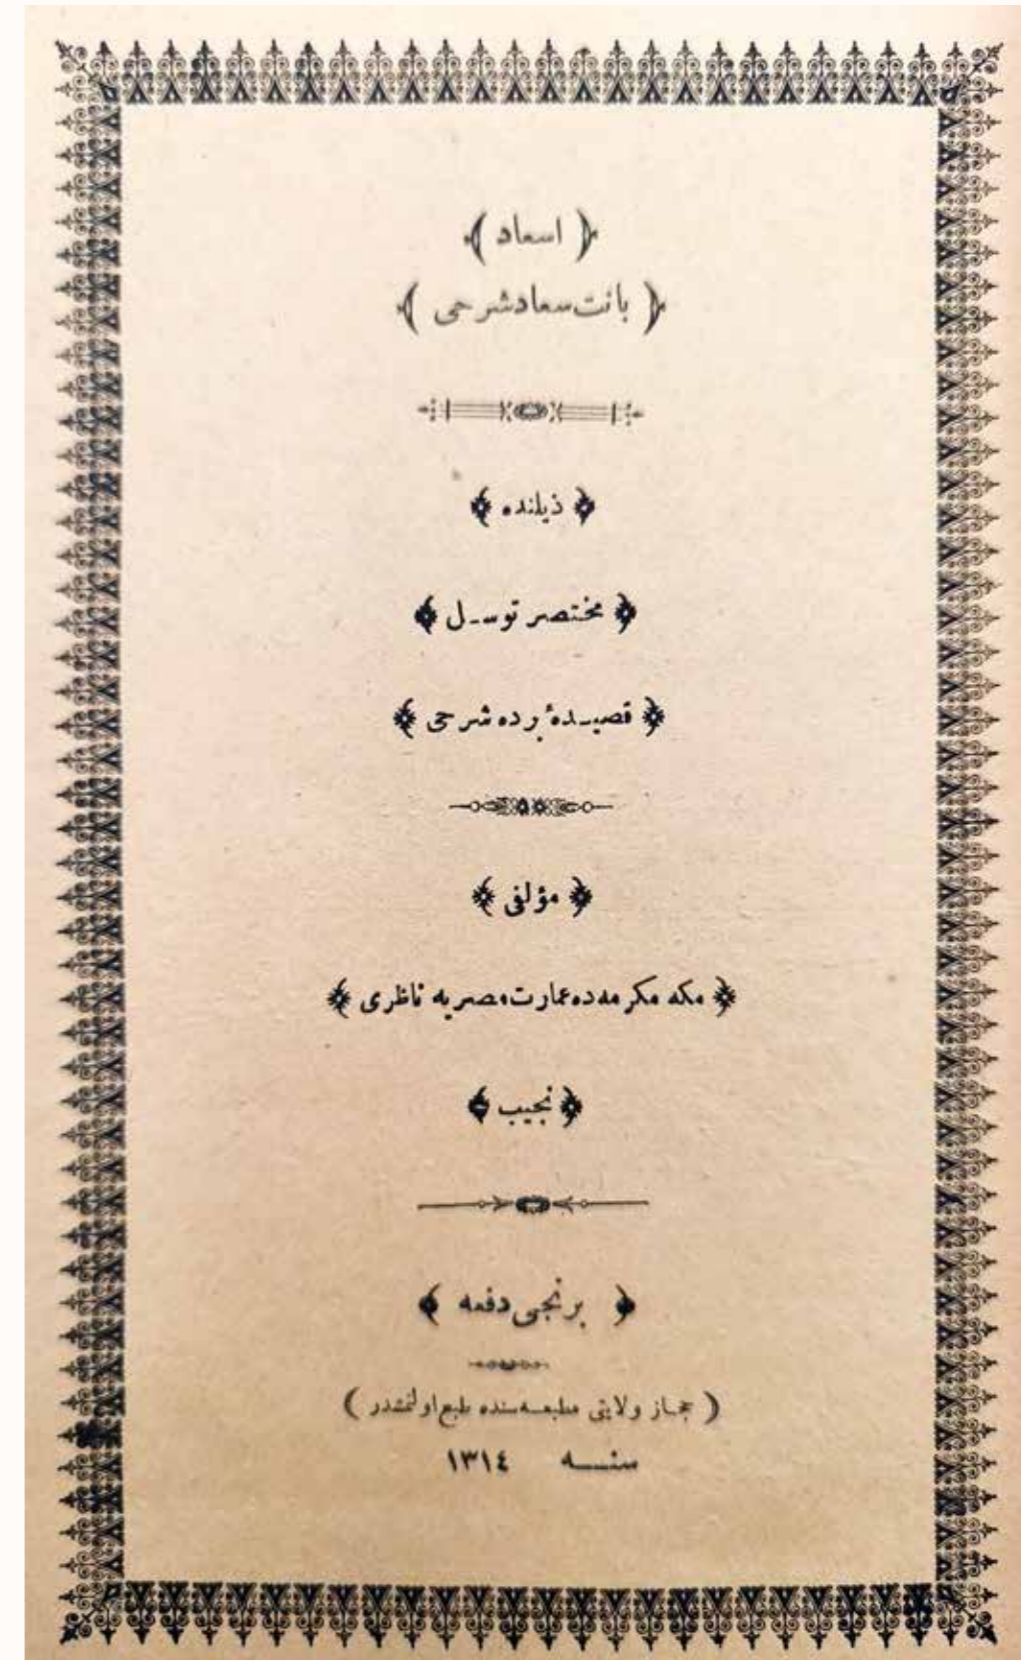 ﴿ اسعاد ﴾
﴿ بانت سعاد شرحی ﴾
﴿ ذیلنده ﴾
﴿ مختصر توسـل ﴾
﴿ قصیـدهٔ برده شرحی ﴾
﴿ مؤلفی ﴾
﴿ مکه مکرمه ده عمارت مصریه ناظری ﴾
﴿ نجیب ﴾
﴿ برنجی دفعه ﴾
( حجـاز ولایتی مطبعـه سنده طبع اولنمشدر )
سنـــه ١٣١٤